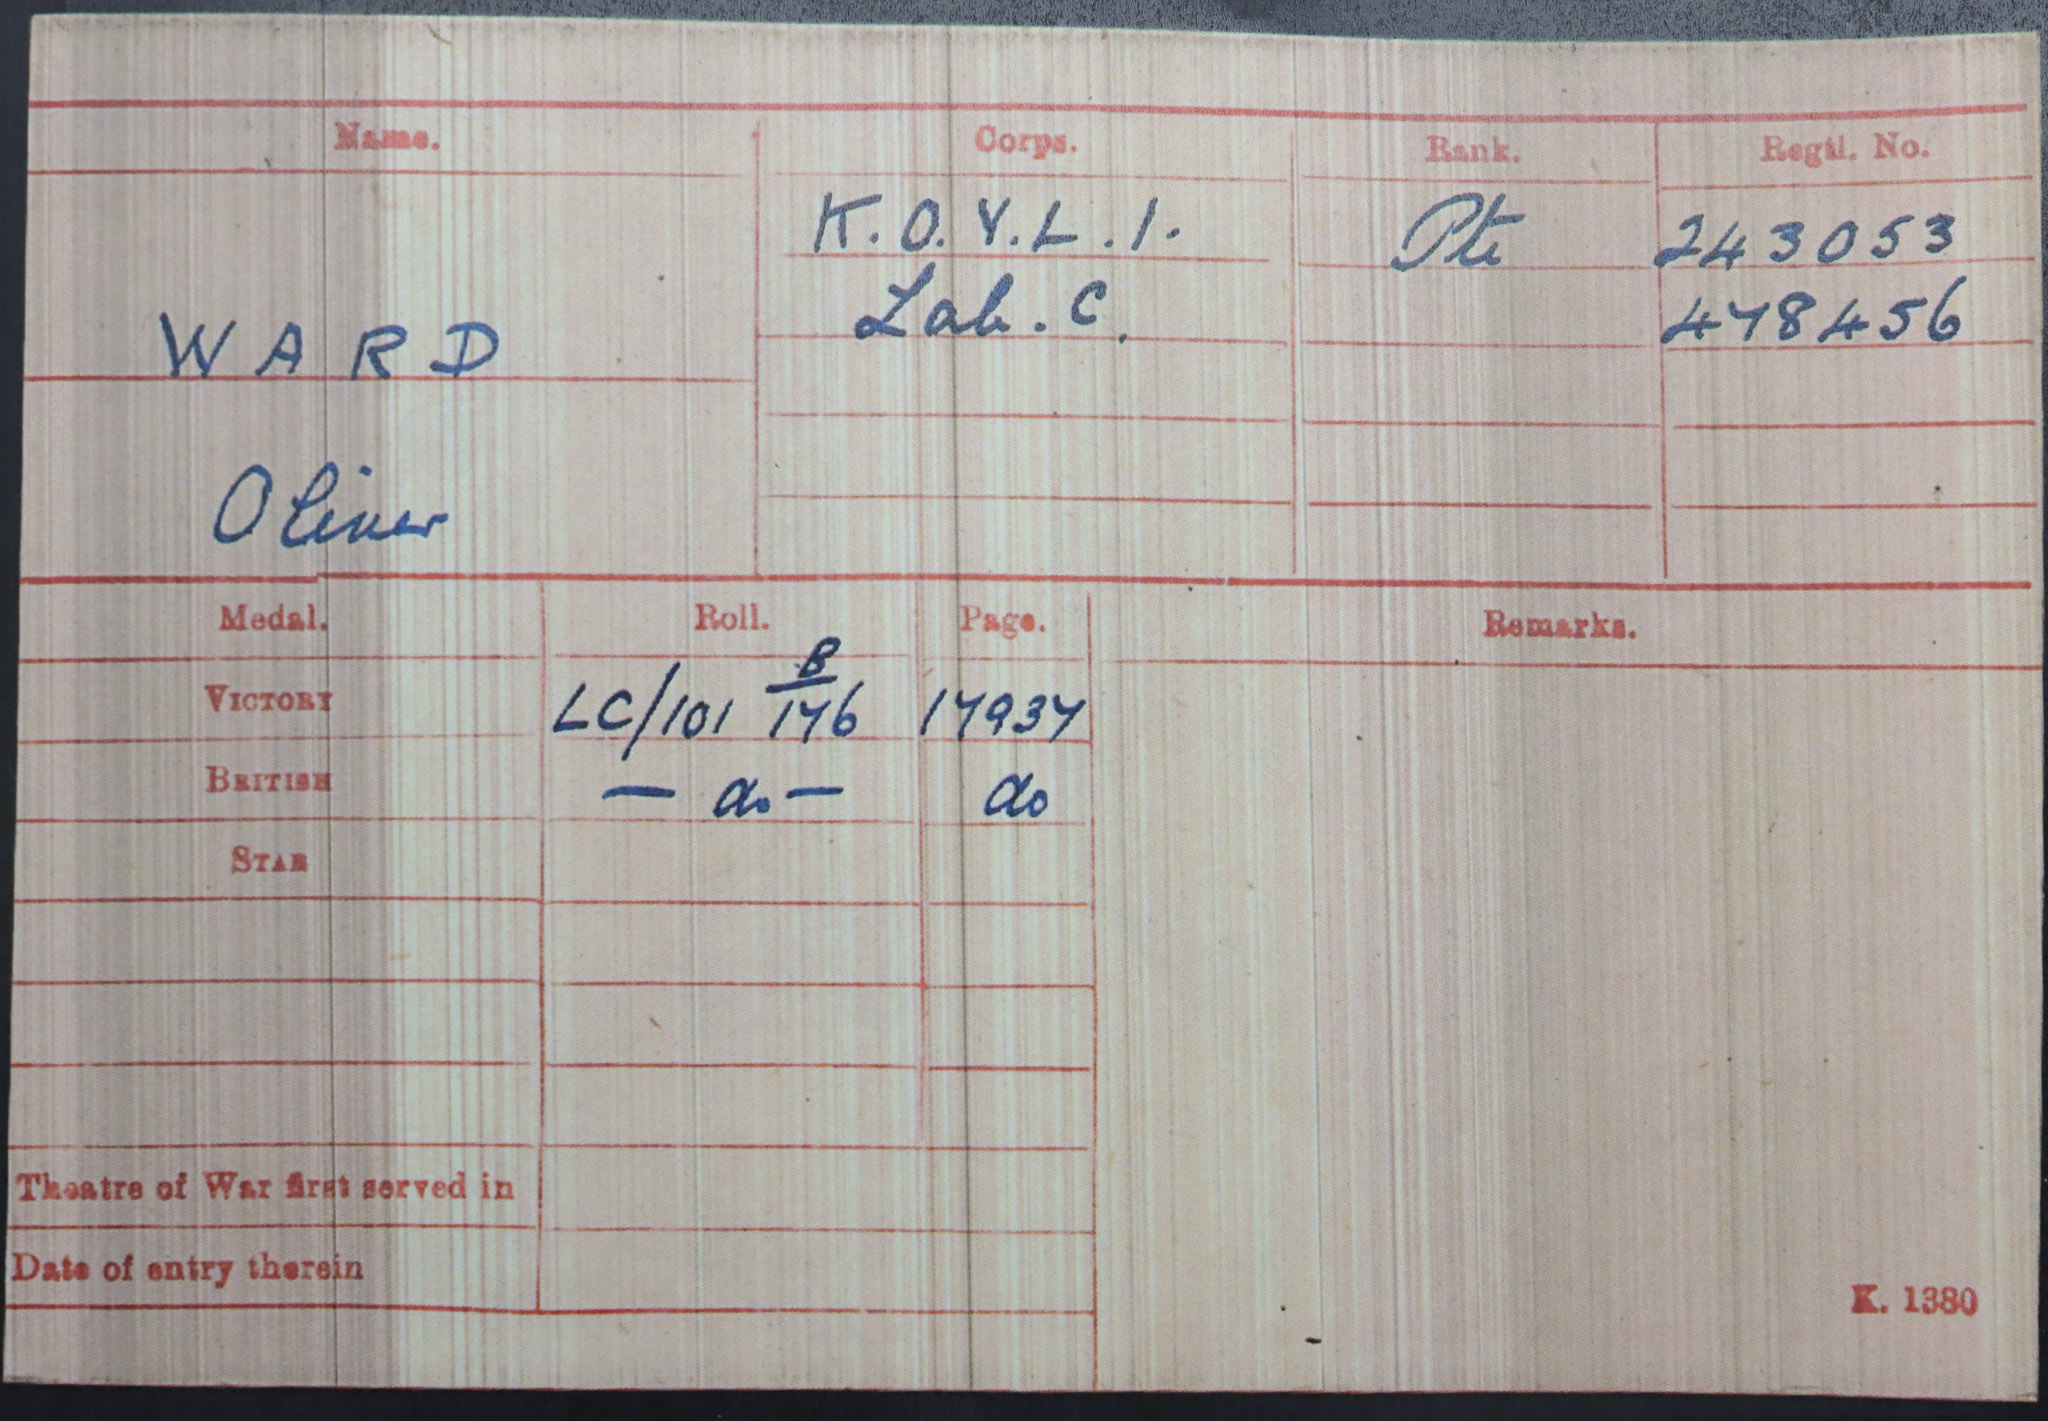 Name. Corps. Rank. Regtl. No.
K.O.Y.L.I. Pte 243053
Lab. C. 478456
WARD
Oliver
Medal. Roll. Page. Remarks.
VICTORY LC/101 B/176 17937
BRITISH — do — do
STAR
Theatre of War first served in
Date of entry therein
K. 1380